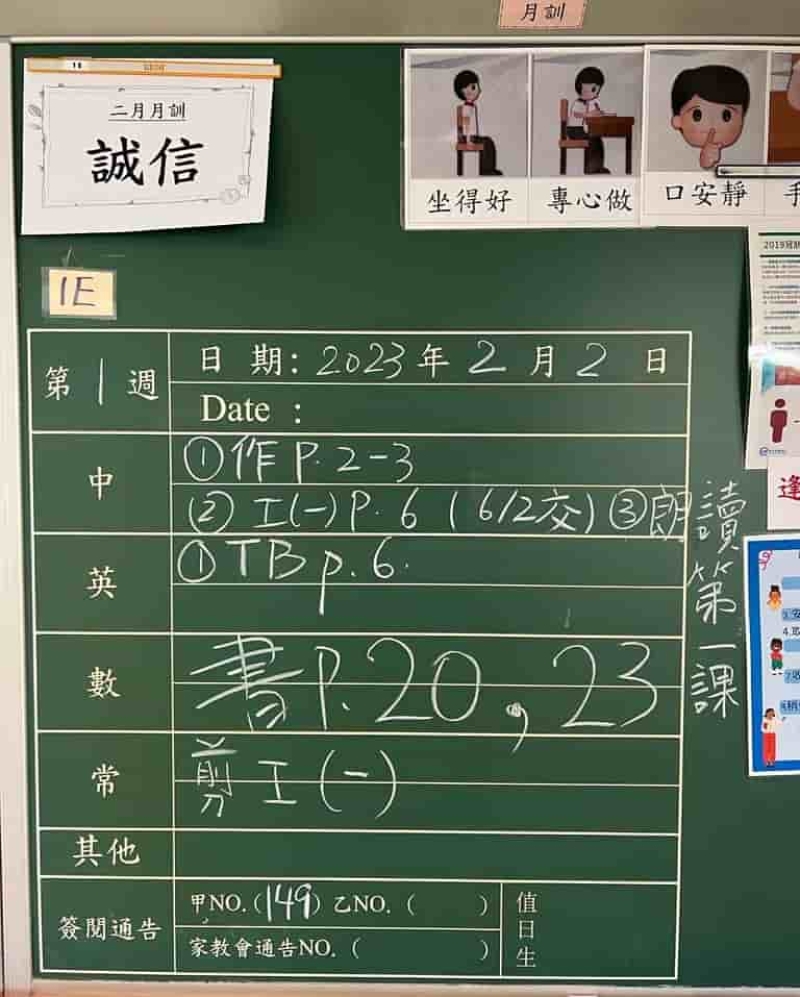 月訓
二月月訓
誠信
坐得好
專心做
口安靜
手
1E
第1週
日期：2023年2月2日
Date :
中
①作 P. 2-3
② 工(一) P. 6 (6/2交) ③朗讀第一課
英
① TB p. 6.
數
書 P. 20, 23
常
剪工(一)
其他
簽閱通告
甲NO.(149) 乙NO. ( )
家教會通告NO. ( )
值日生